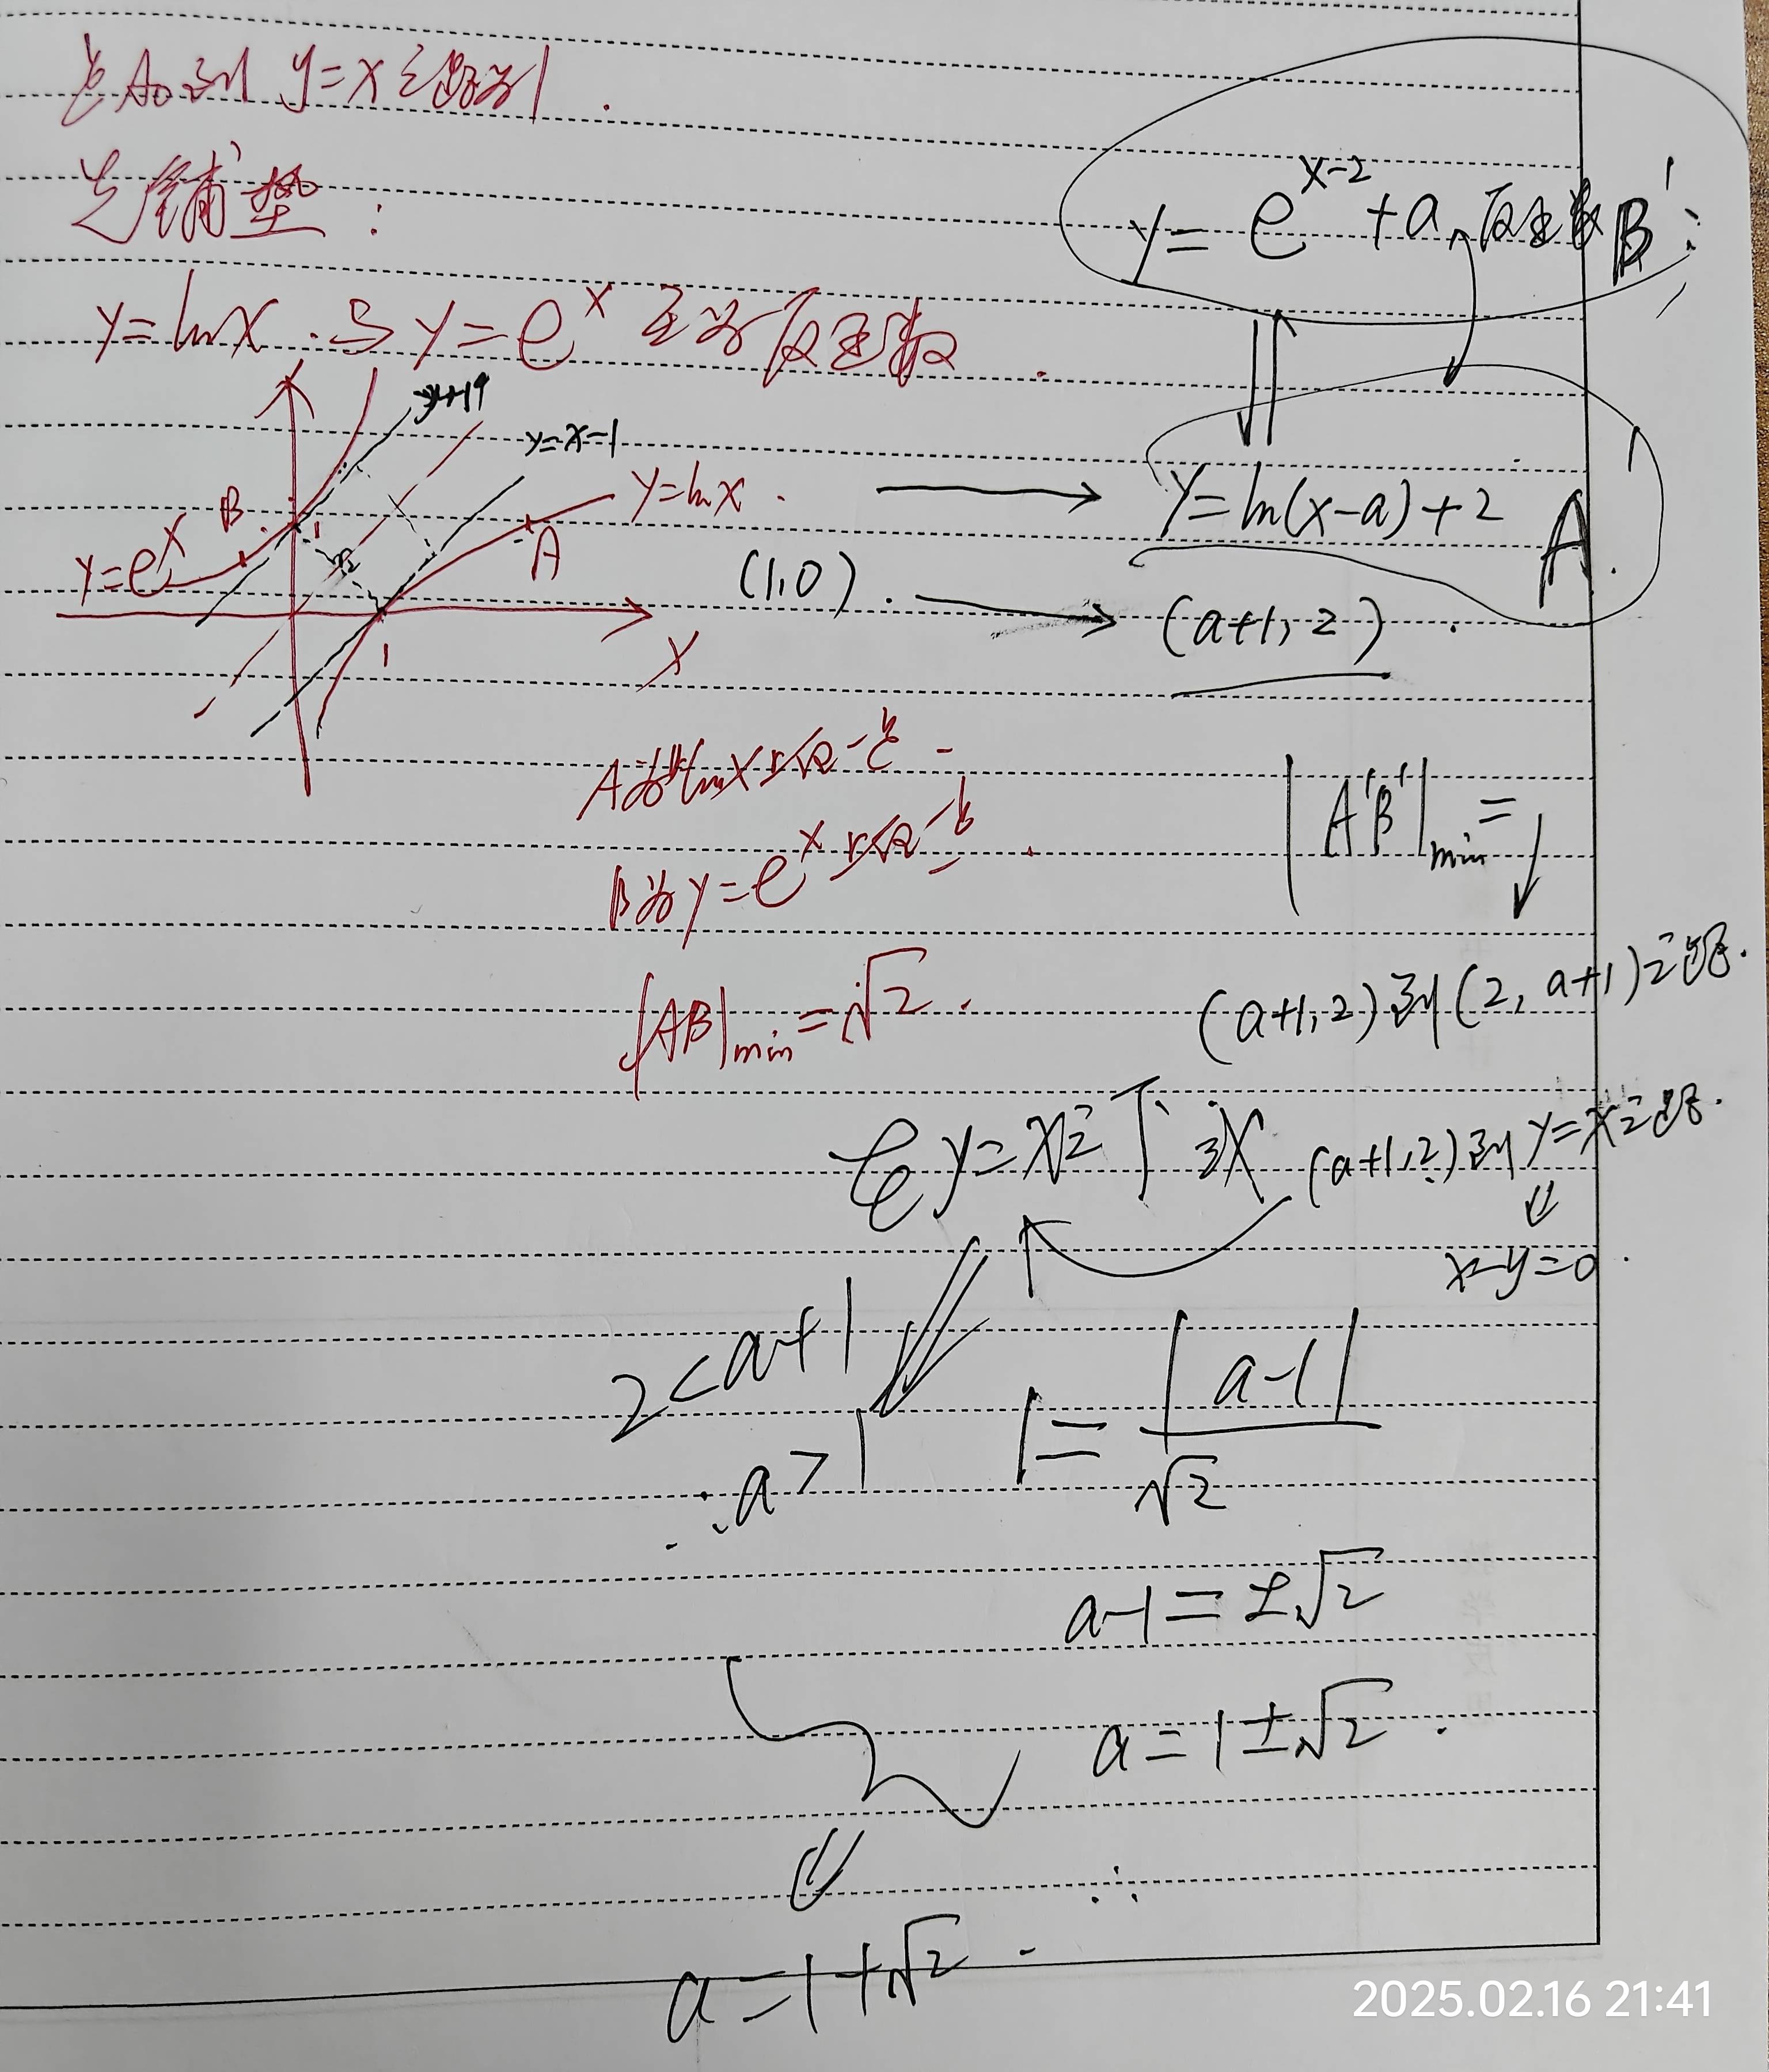 点A₀到 y=x之距为1.
先铺垫:
y=lnx 与 y=eˣ 互为反函数.
y=x-1
y=lnx
y=eˣ
B
A
1
1
x
A为lnx上任一点
B为y=eˣ上任一点.
|AB|min=√2.
y=e^(x-2)+a, 反函数 B':
y=ln(x-a)+2 A'
(1,0). → (a+1, 2).
|A'B'|min=
(a+1, 2)到(2, a+1)之距.
在y=x之下方
(a+1, 2)到y=x之距.
x-y=0.
2<a+1
∴a>1
1=|a-1|/√2
a-1=±√2
a=1±√2.
∴
a=1+√2.
2025.02.16 21:41